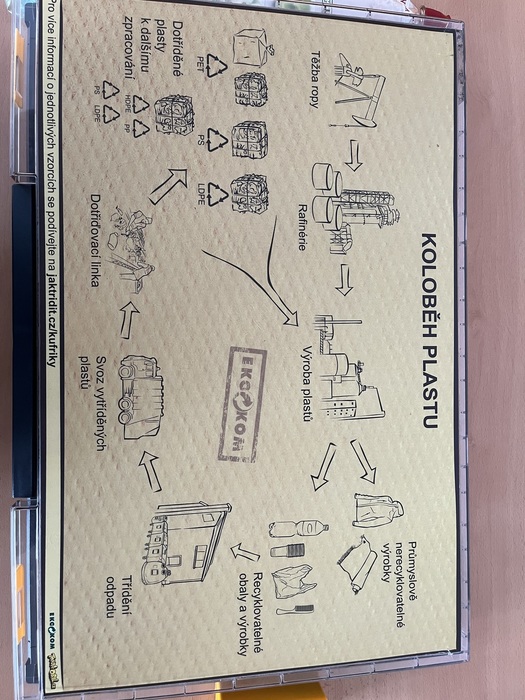 KOLOBĚH PLASTU
Těžba ropy
Rafinérie
Výroba plastů
Průmyslově
nerecyklovatelné
výrobky
Recyklovatelné
obaly a výrobky
Třídění
odpadu
Svoz vytříděných
plastů
Dotřiďovací linka
Dotříděné
plasty
k dalšímu
zpracování
PET
PS
LDPE
HDPE
PP
PS
LDPE
EKO KOM
Pro více informací o jednotlivých vzorcích se podívejte na jaktridit.cz/kufriky
EKO KOM